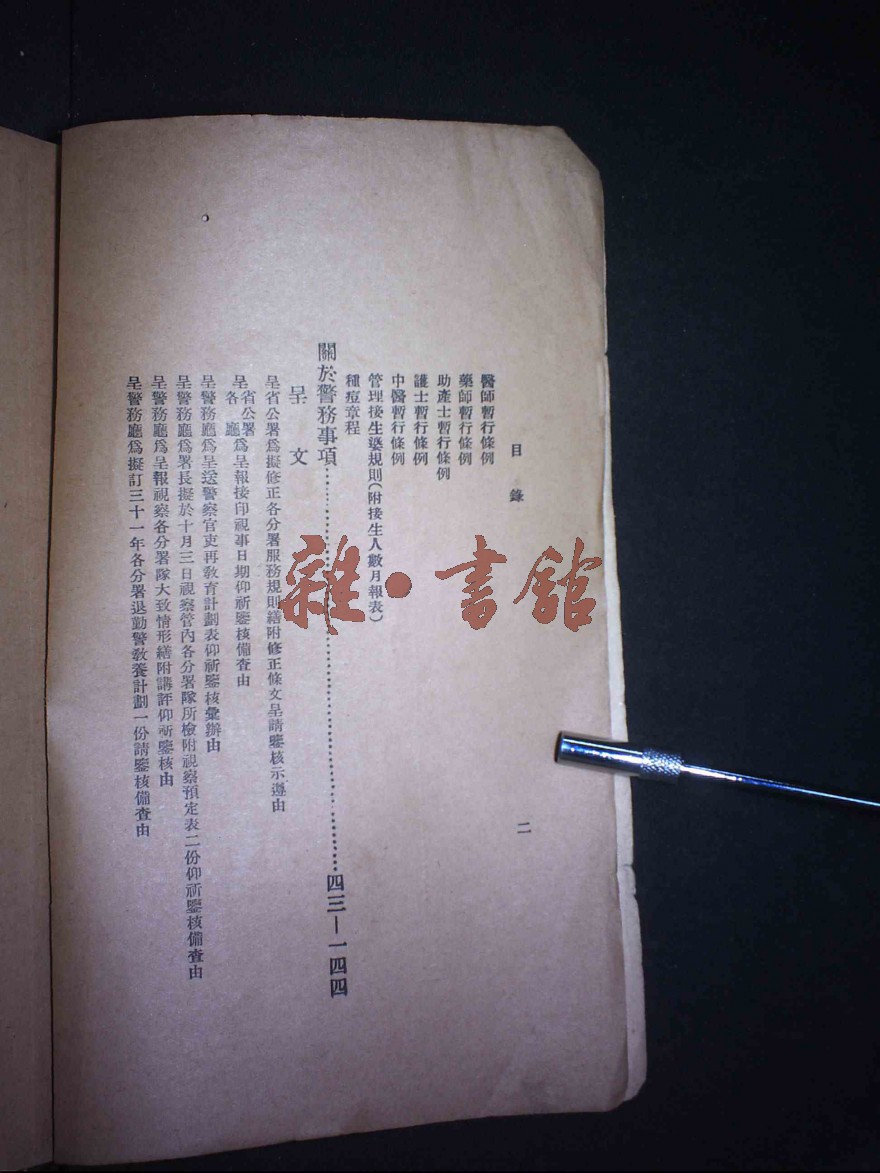 目錄
二
醫師暫行條例
藥師暫行條例
助產士暫行條例
護士暫行條例
中醫暫行條例
管理接生婆規則(附接生人數月報表)
種痘章程
關於警務事項……四三—一四四
呈文
呈省公署爲擬修正各分署服務規則繕附修正條文呈請鑒核示遵由
呈省公署各廳爲呈報接印視事日期仰祈鑒核備查由
呈警務廳爲呈送警察官吏再敎育計劃表仰祈鑒核彙辦由
呈警務廳爲署長擬於十月三日視察管內各分署隊所檢附視察預定表二份仰祈鑒核備查由
呈警務廳爲呈報視察各分署隊大致情形繕附講評仰祈鑒核由
呈警務廳爲擬訂三十一年各分署退勤警敎養計劃一份請鑒核備查由
雜·書館